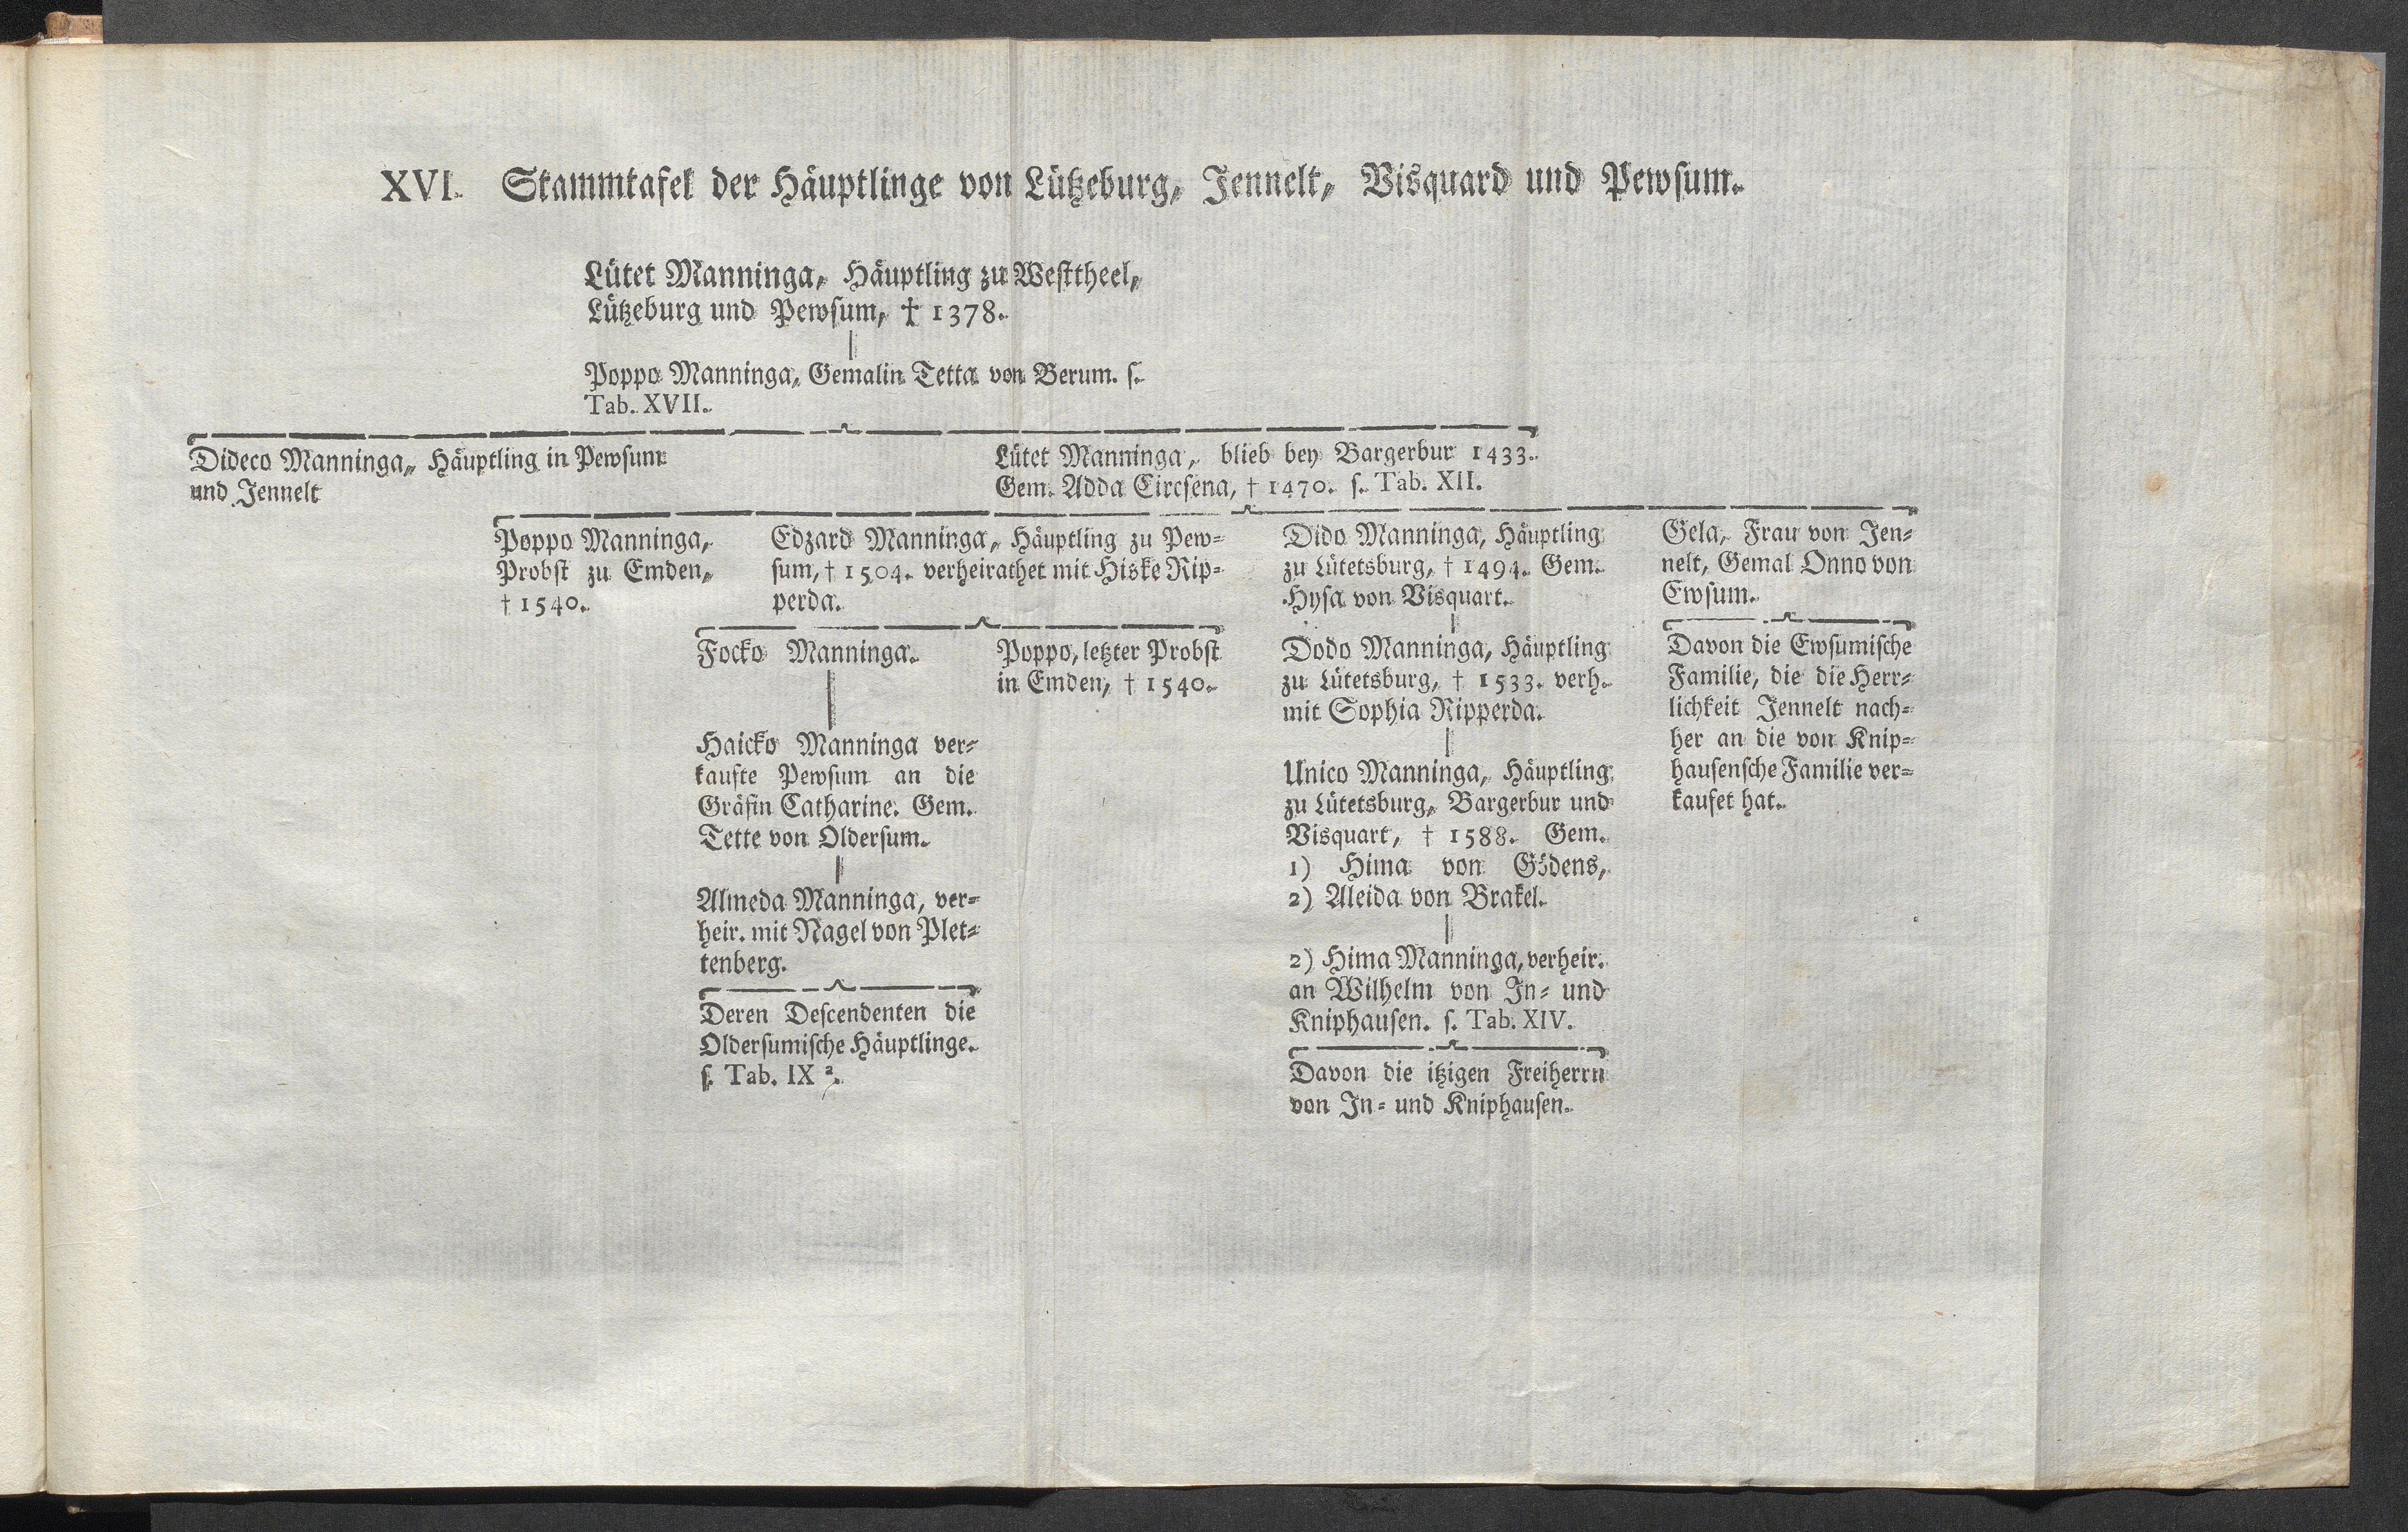 XVI. Stammtafel der Häuptlinge von Lützeburg, Jennelt, Visquard und Pewsum.
Lütet Manninga, Häuptling zu Westtheel,
Lützeburg und Pewsum, † 1378.
Poppo Manninga, Gemalin Tetta von Berum. s.
Tab. XVII.
Dideco Manninga, Häuptling in Pewsum
und Jennelt
Lütet Manninga, blieb bey Bargerbur 1433.
Gem. Adda Circsena, † 1470. s. Tab. XII.
Poppo Manninga,
Probst zu Emden,
† 1540.
Edzard Manninga, Häuptling zu Pew-
sum, † 1504. verheirathet mit Hiske Rip-
perda.
Dido Manninga, Häuptling
zu Lütetsburg, † 1494. Gem.
Hysa von Visquart.
Gela, Frau von Jen-
nelt, Gemal Onno von
Ewsum.
Focko Manninga.
Poppo, letzter Probst
in Emden, † 1540.
Dodo Manninga, Häuptling
zu Lütetsburg, † 1533. verh.
mit Sophia Ripperda.
Davon die Ewsumische
Familie, die die Herr-
lichkeit Jennelt nach-
her an die von Knip-
hausensche Familie ver-
kaufet hat.
Haicko Manninga ver-
kaufte Pewsum an die
Gräfin Catharine. Gem.
Tette von Oldersum.
Unico Manninga, Häuptling
zu Lütetsburg, Bargerbur und
Visquart, † 1588. Gem.
1) Hima von Gödens,
2) Aleida von Brakel.
Almeda Manninga, ver-
heir. mit Nagel von Plet-
tenberg.
2) Hima Manninga, verheir.
an Wilhelm von In- und
Kniphausen. s. Tab. XIV.
Deren Descendenten die
Oldersumische Häuptlinge.
s. Tab. IX ².
Davon die itzigen Freiherrn
von In- und Kniphausen.